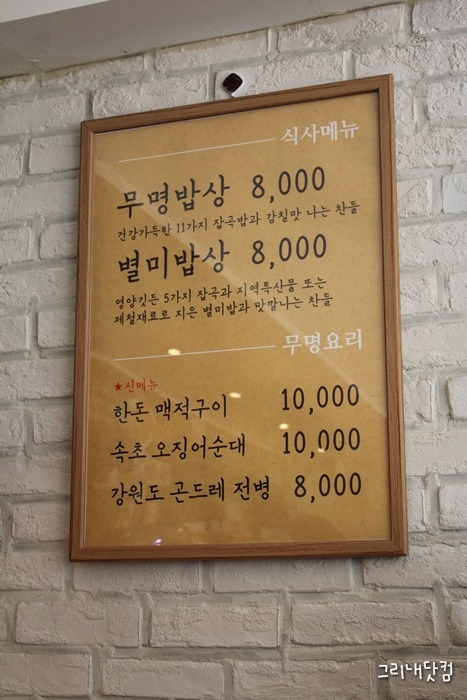 식사메뉴
무명밥상 8,000
건강가득한 11가지 잡곡밥과 감칠맛 나는 찬들
별미밥상 8,000
영양깃든 5가지 잡곡과 지역특산물 또는
제철재료로 지은 별미밥과 맛깔나는 찬들
무명요리
★신메뉴
한돈 맥적구이 10,000
속초 오징어순대 10,000
강원도 곤드레 전병 8,000
그리내닷컴